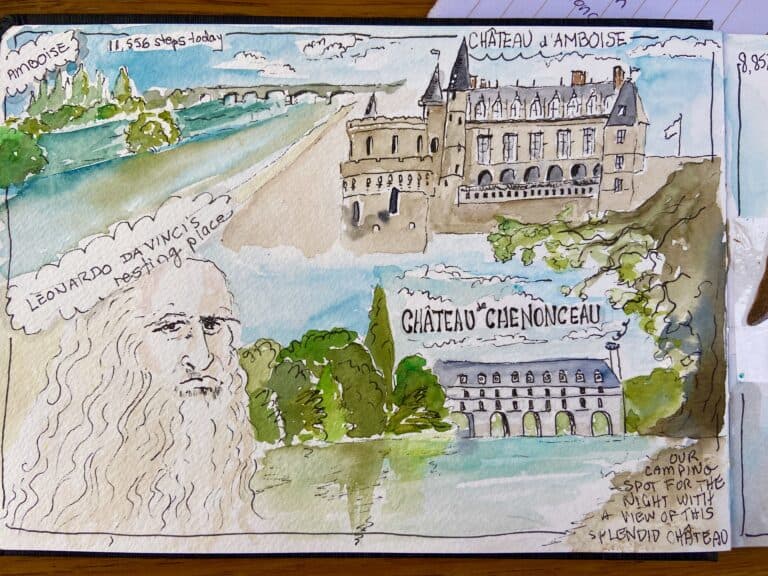 AMBOISE
11,556 steps today
CHÂTEAU d'AMBOISE
LEONARDO DA VINCI'S
resting place
CHÂTEAU de CHENONCEAU
OUR
CAMPING
SPOT FOR THE
NIGHT WITH
A VIEW OF THIS
SPLENDID CHÂTEAU